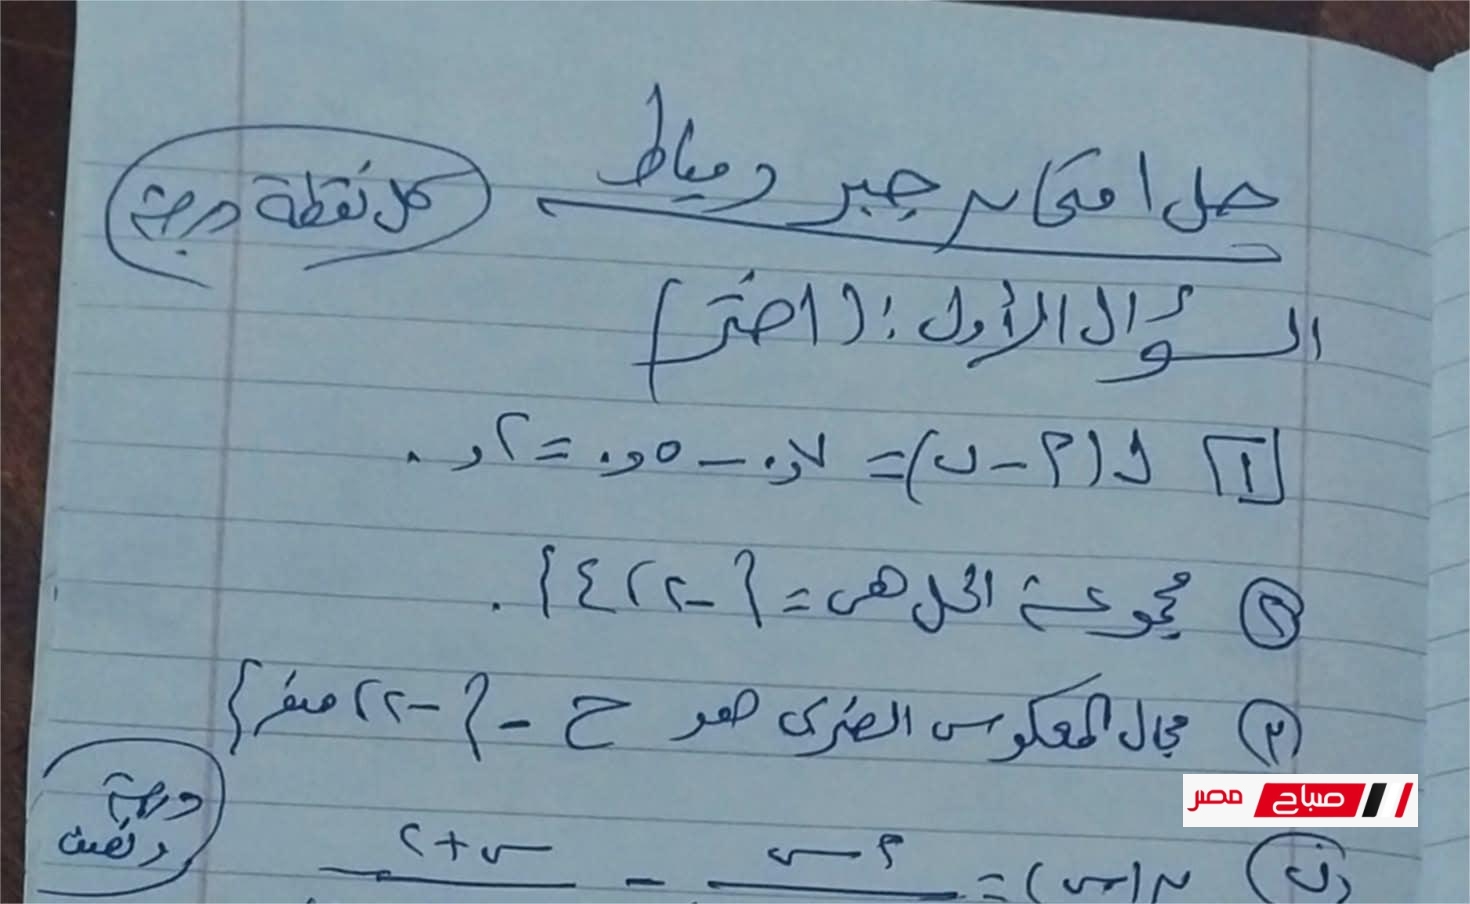 حل امتحان جبر دمياط
كل نقطة درجة
السؤال الأول: (اختر)
[١] ل(٢ - ب) = ٧و٠ - ٥و٠ = ٢و٠
(٢) مجموعة الحل هى = {-٢، ٤}.
(٣) مجال المعكوس الضربى هو ح - {-٢، صفر}
درجة
ونصف
(ب) ن(س) =
٢ س
-
س + ٢
صباح مصر